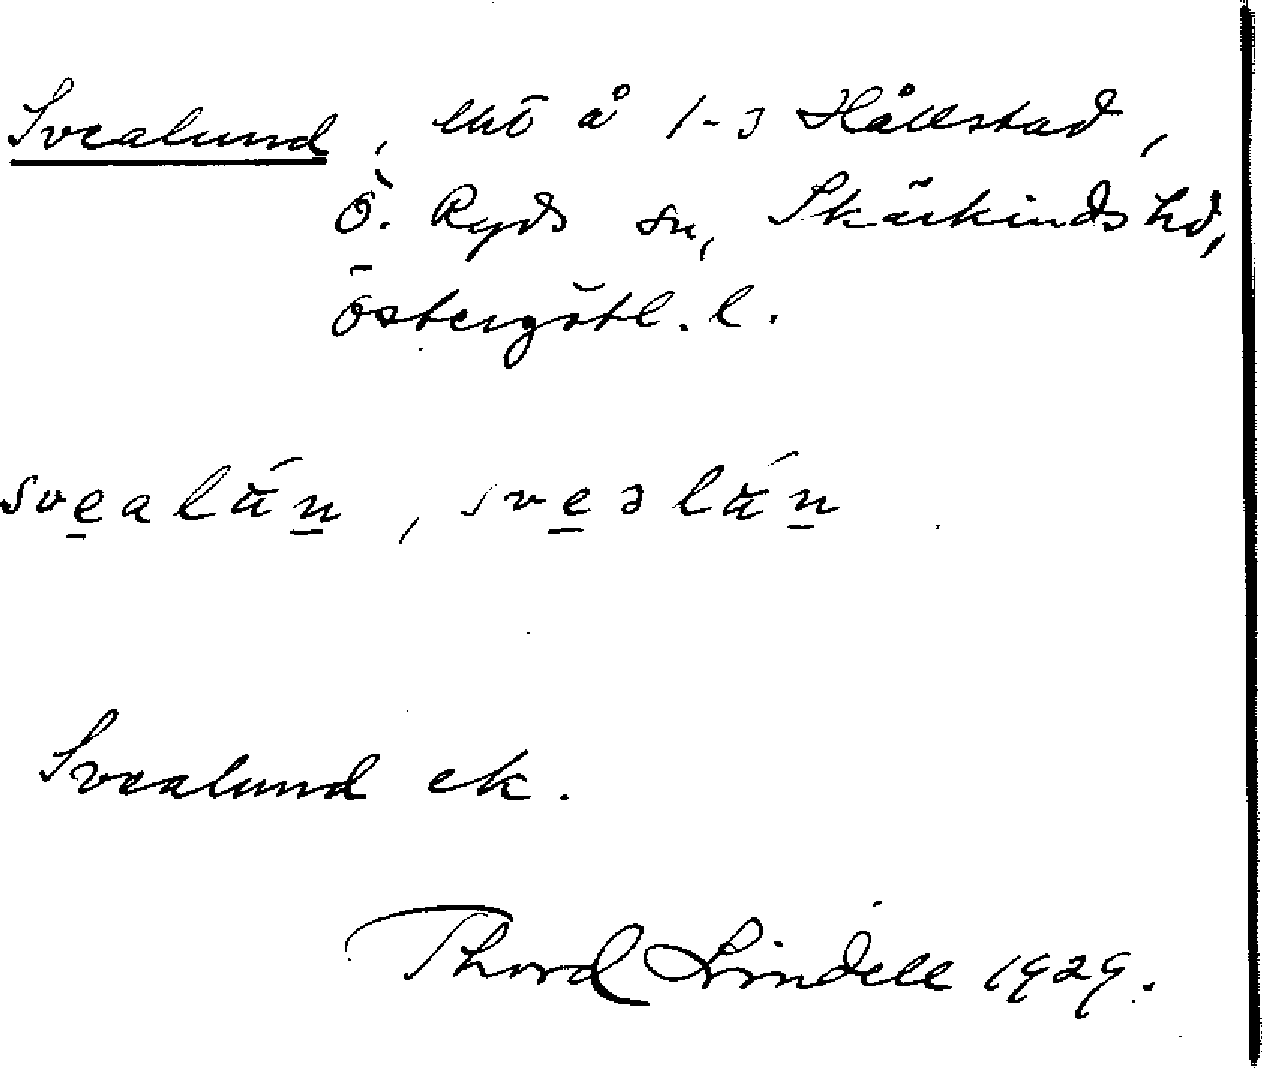 Svealund, lht å 1-3 Hållstad,
Ö. Ryds sn, Skärkinds hd,
Östergötl. l.
svealun, sveəlun
Svealund ek.
Thord Lindell 1929.